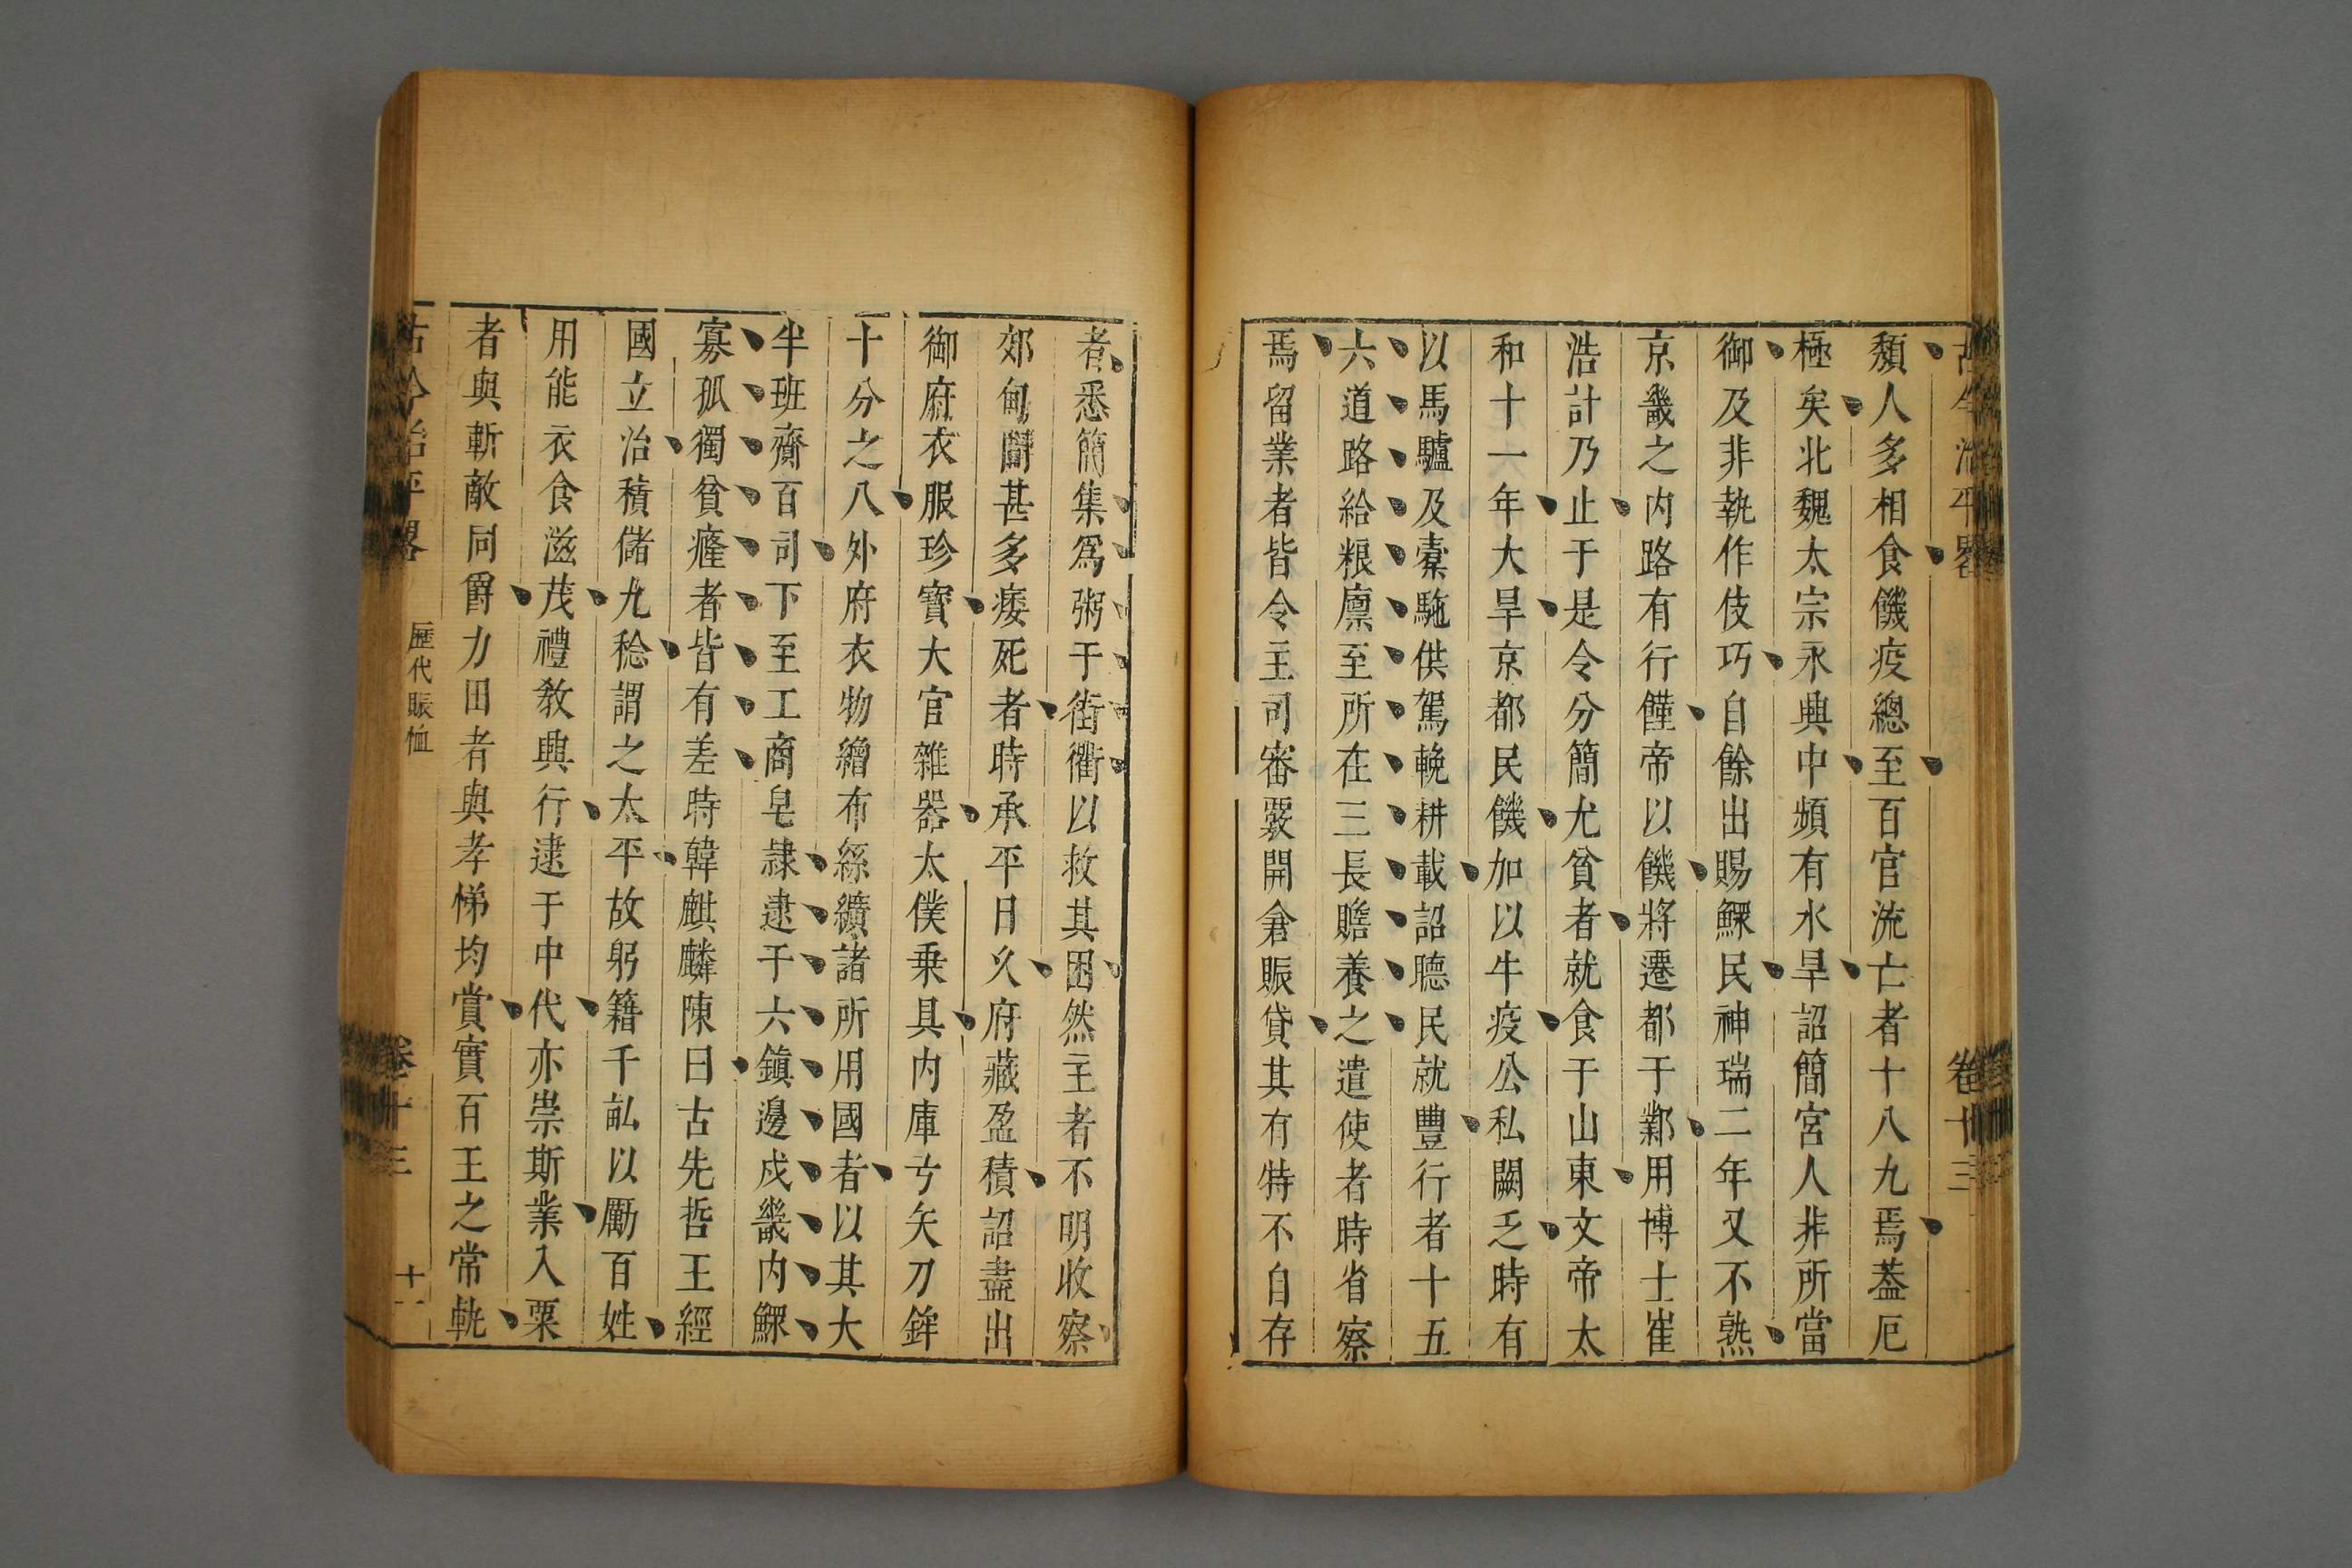 古今治平畧
卷十三
頽人多相食饑疫總至百官流亡者十八九焉葢厄
極矣北魏太宗永興中頻有水旱詔簡宮人非所當
御及非執作伎巧自餘出賜鰥民神瑞二年又不熟
京畿之内路有行饉帝以饑將遷都于鄴用博士崔
浩計乃止于是令分簡尤貧者就食于山東文帝太
和十一年大旱京都民饑加以牛疫公私闕乏時有
以馬驢及橐駞供駕輓耕載詔聽民就豐行者十五
六道路給粮廪至所在三長贍養之遣使者時省察
焉留業者皆令主司審覈開倉賑貸其有特不自存
者悉簡集爲粥于街衢以救其困然主者不明收察
郊甸間甚多痿死者時承平日久府藏盈積詔盡出
御府衣服珍寶大官雜器太僕乗具内庫弓矢刀鉾
十分之八外府衣物繒布絲纊諸所用國者以其大
半班齎百司下至工商皂隷逮于六鎮邊戍畿内鰥
寡孤獨貧癃者皆有差時韓麒麟陳曰古先哲王經
國立治積儲九稔謂之太平故躬籍千畆以勵百姓
用能衣食滋茂禮教興行逮于中代亦崇斯業入粟
者與斬敵同爵力田者與孝悌均賞實百王之常軌
古今治平畧
歷代賑恤
卷十三
十一